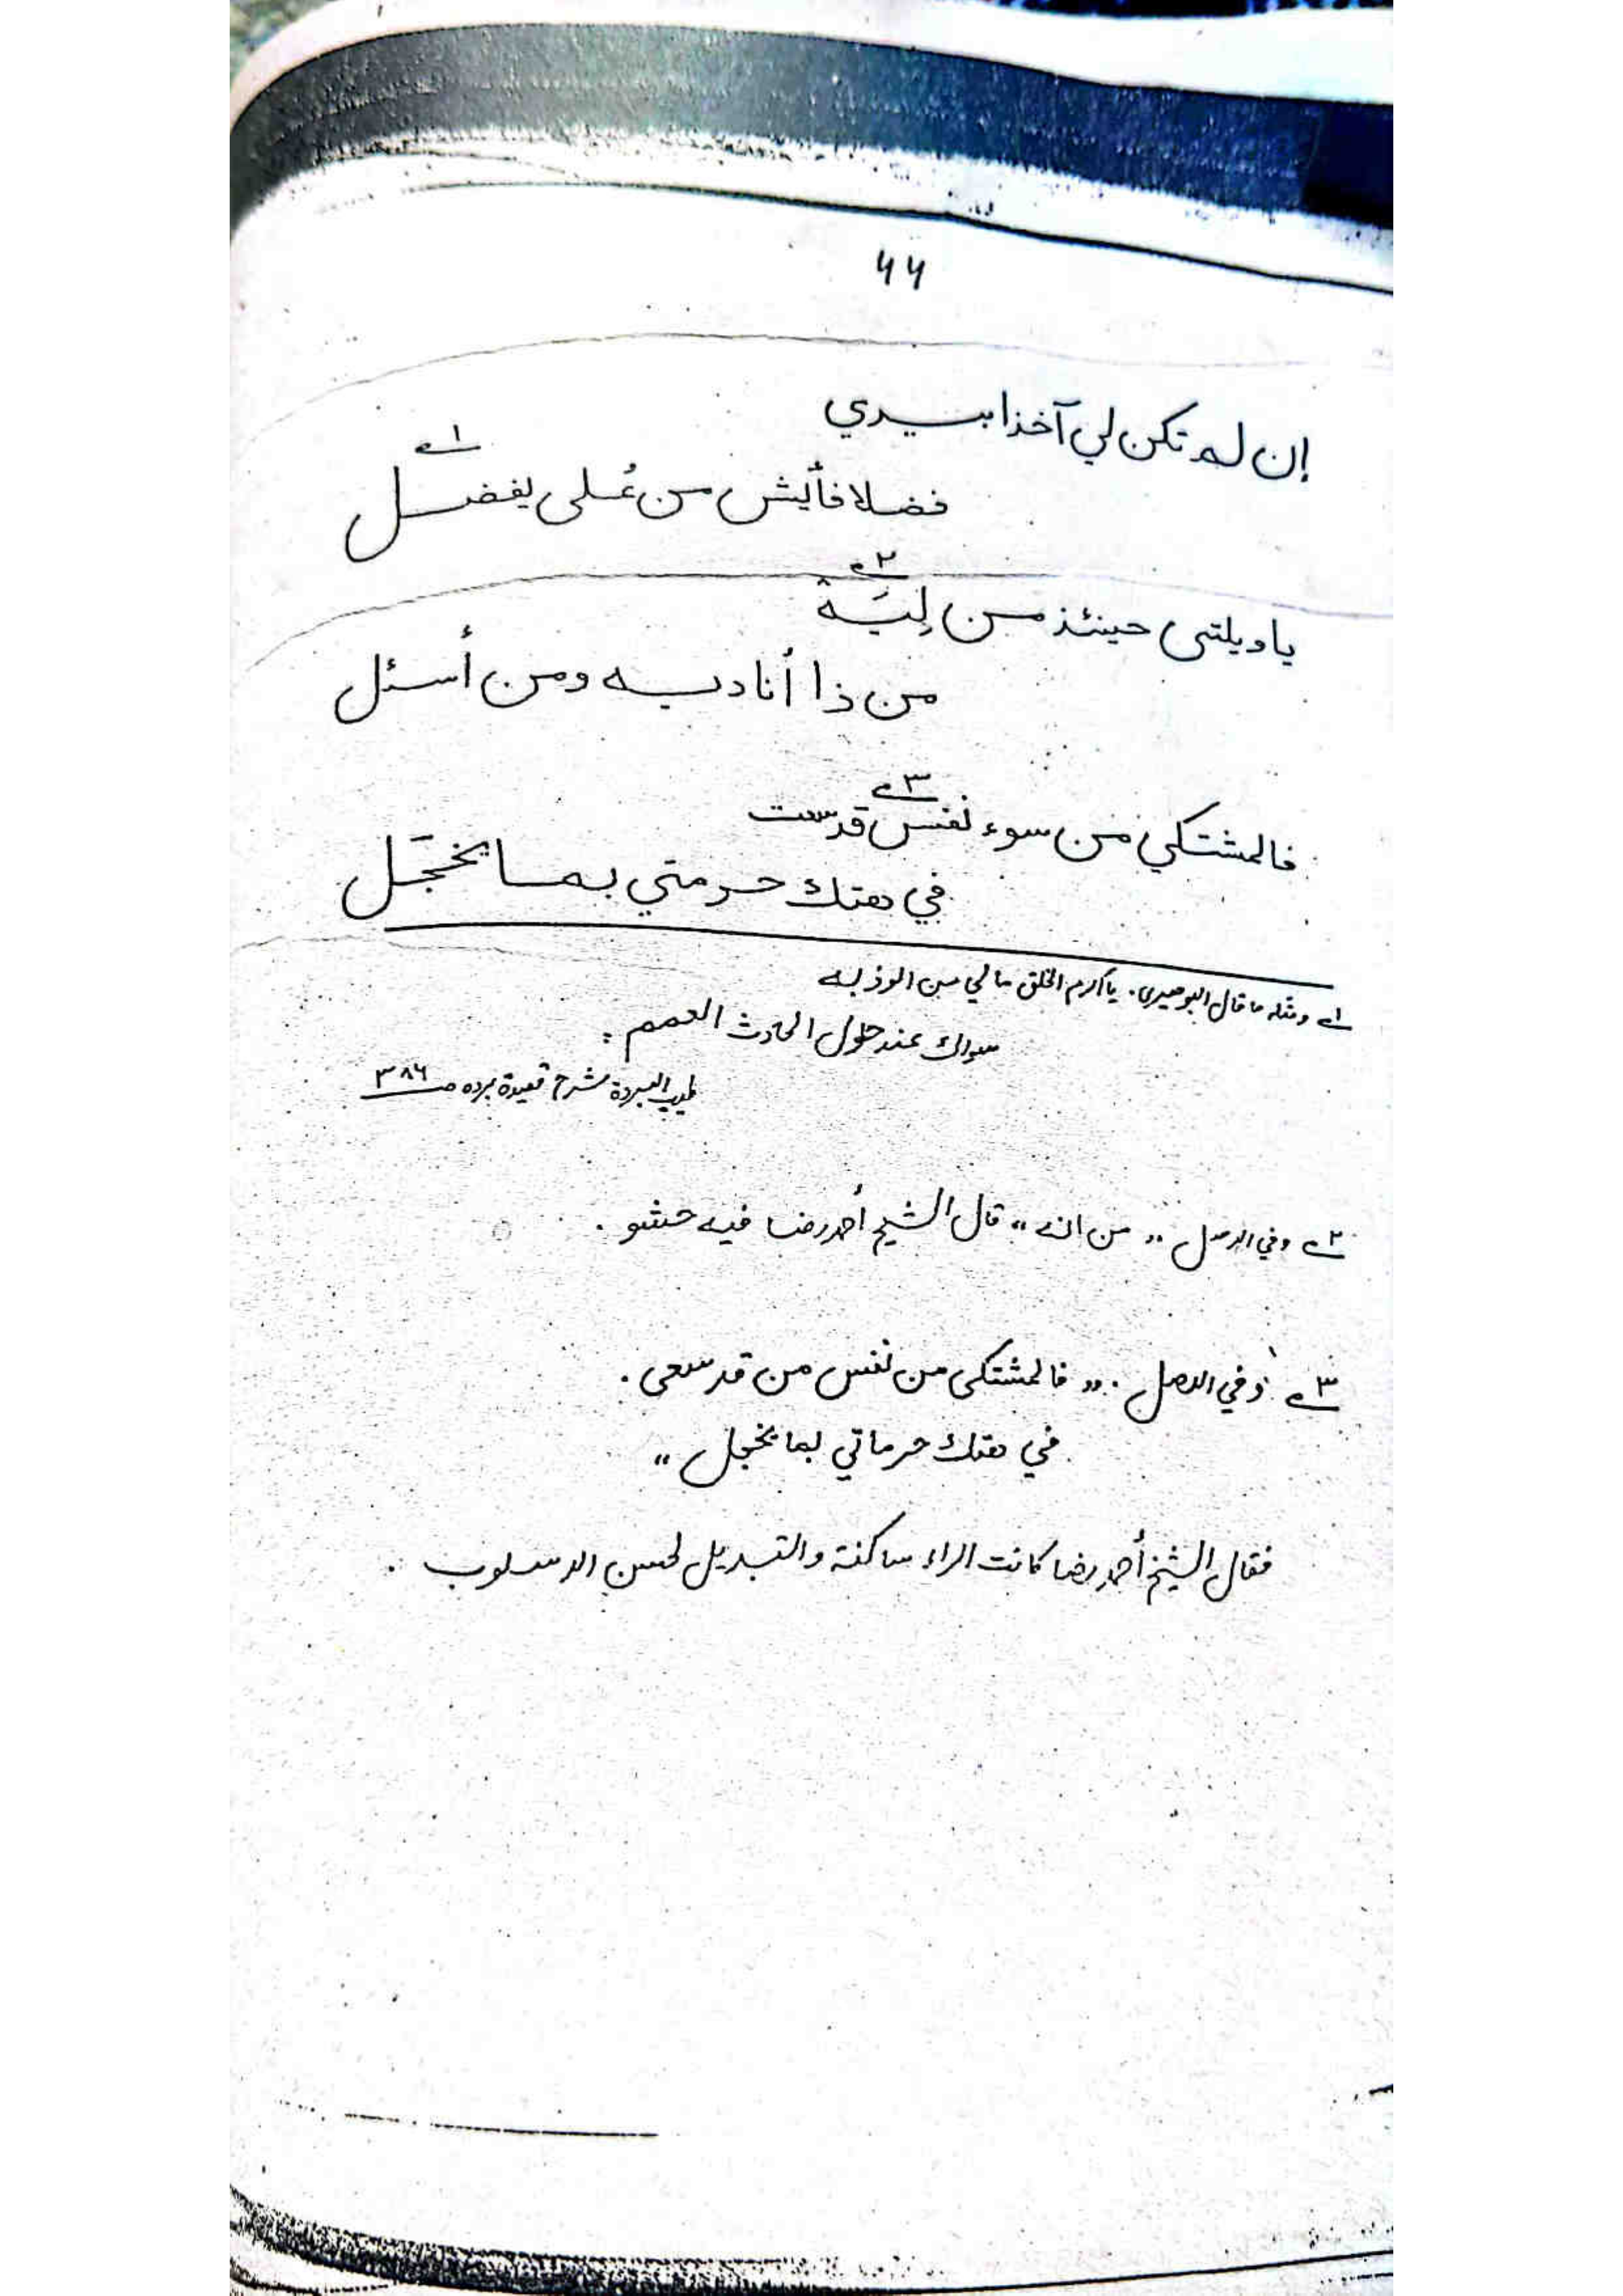 ۶۶
إن لم تكن لي آخذا بيدي
فضلا فأيش من عُلى يفضل
ياويلتى حينئذ من لِيَهْ
من ذا أناديه ومن أسئل
فالمشتكي من سوء نفس قد سعت
في هتك حرمتي بما يخجّل
۱ ومثله ما قال البوصيري. يا أكرم الخلق ما لي من الوذ به
سواك عند حلول الحادث العمم :
طيب البردة شرح قصيدة برده صـ ۳۸۶
۲ وفي الاصل ,, من الذے ،، قال الشيخ أحمد رضا فيه حشو .
۳ وفي الاصل . ,, فالمشتكى من نفس من قد سعى .
في هتك حرماتي بما يخجل ،،
فقال الشيخ أحمد رضا كانت الراء ساكنة والتبديل لحسن الاسلوب .